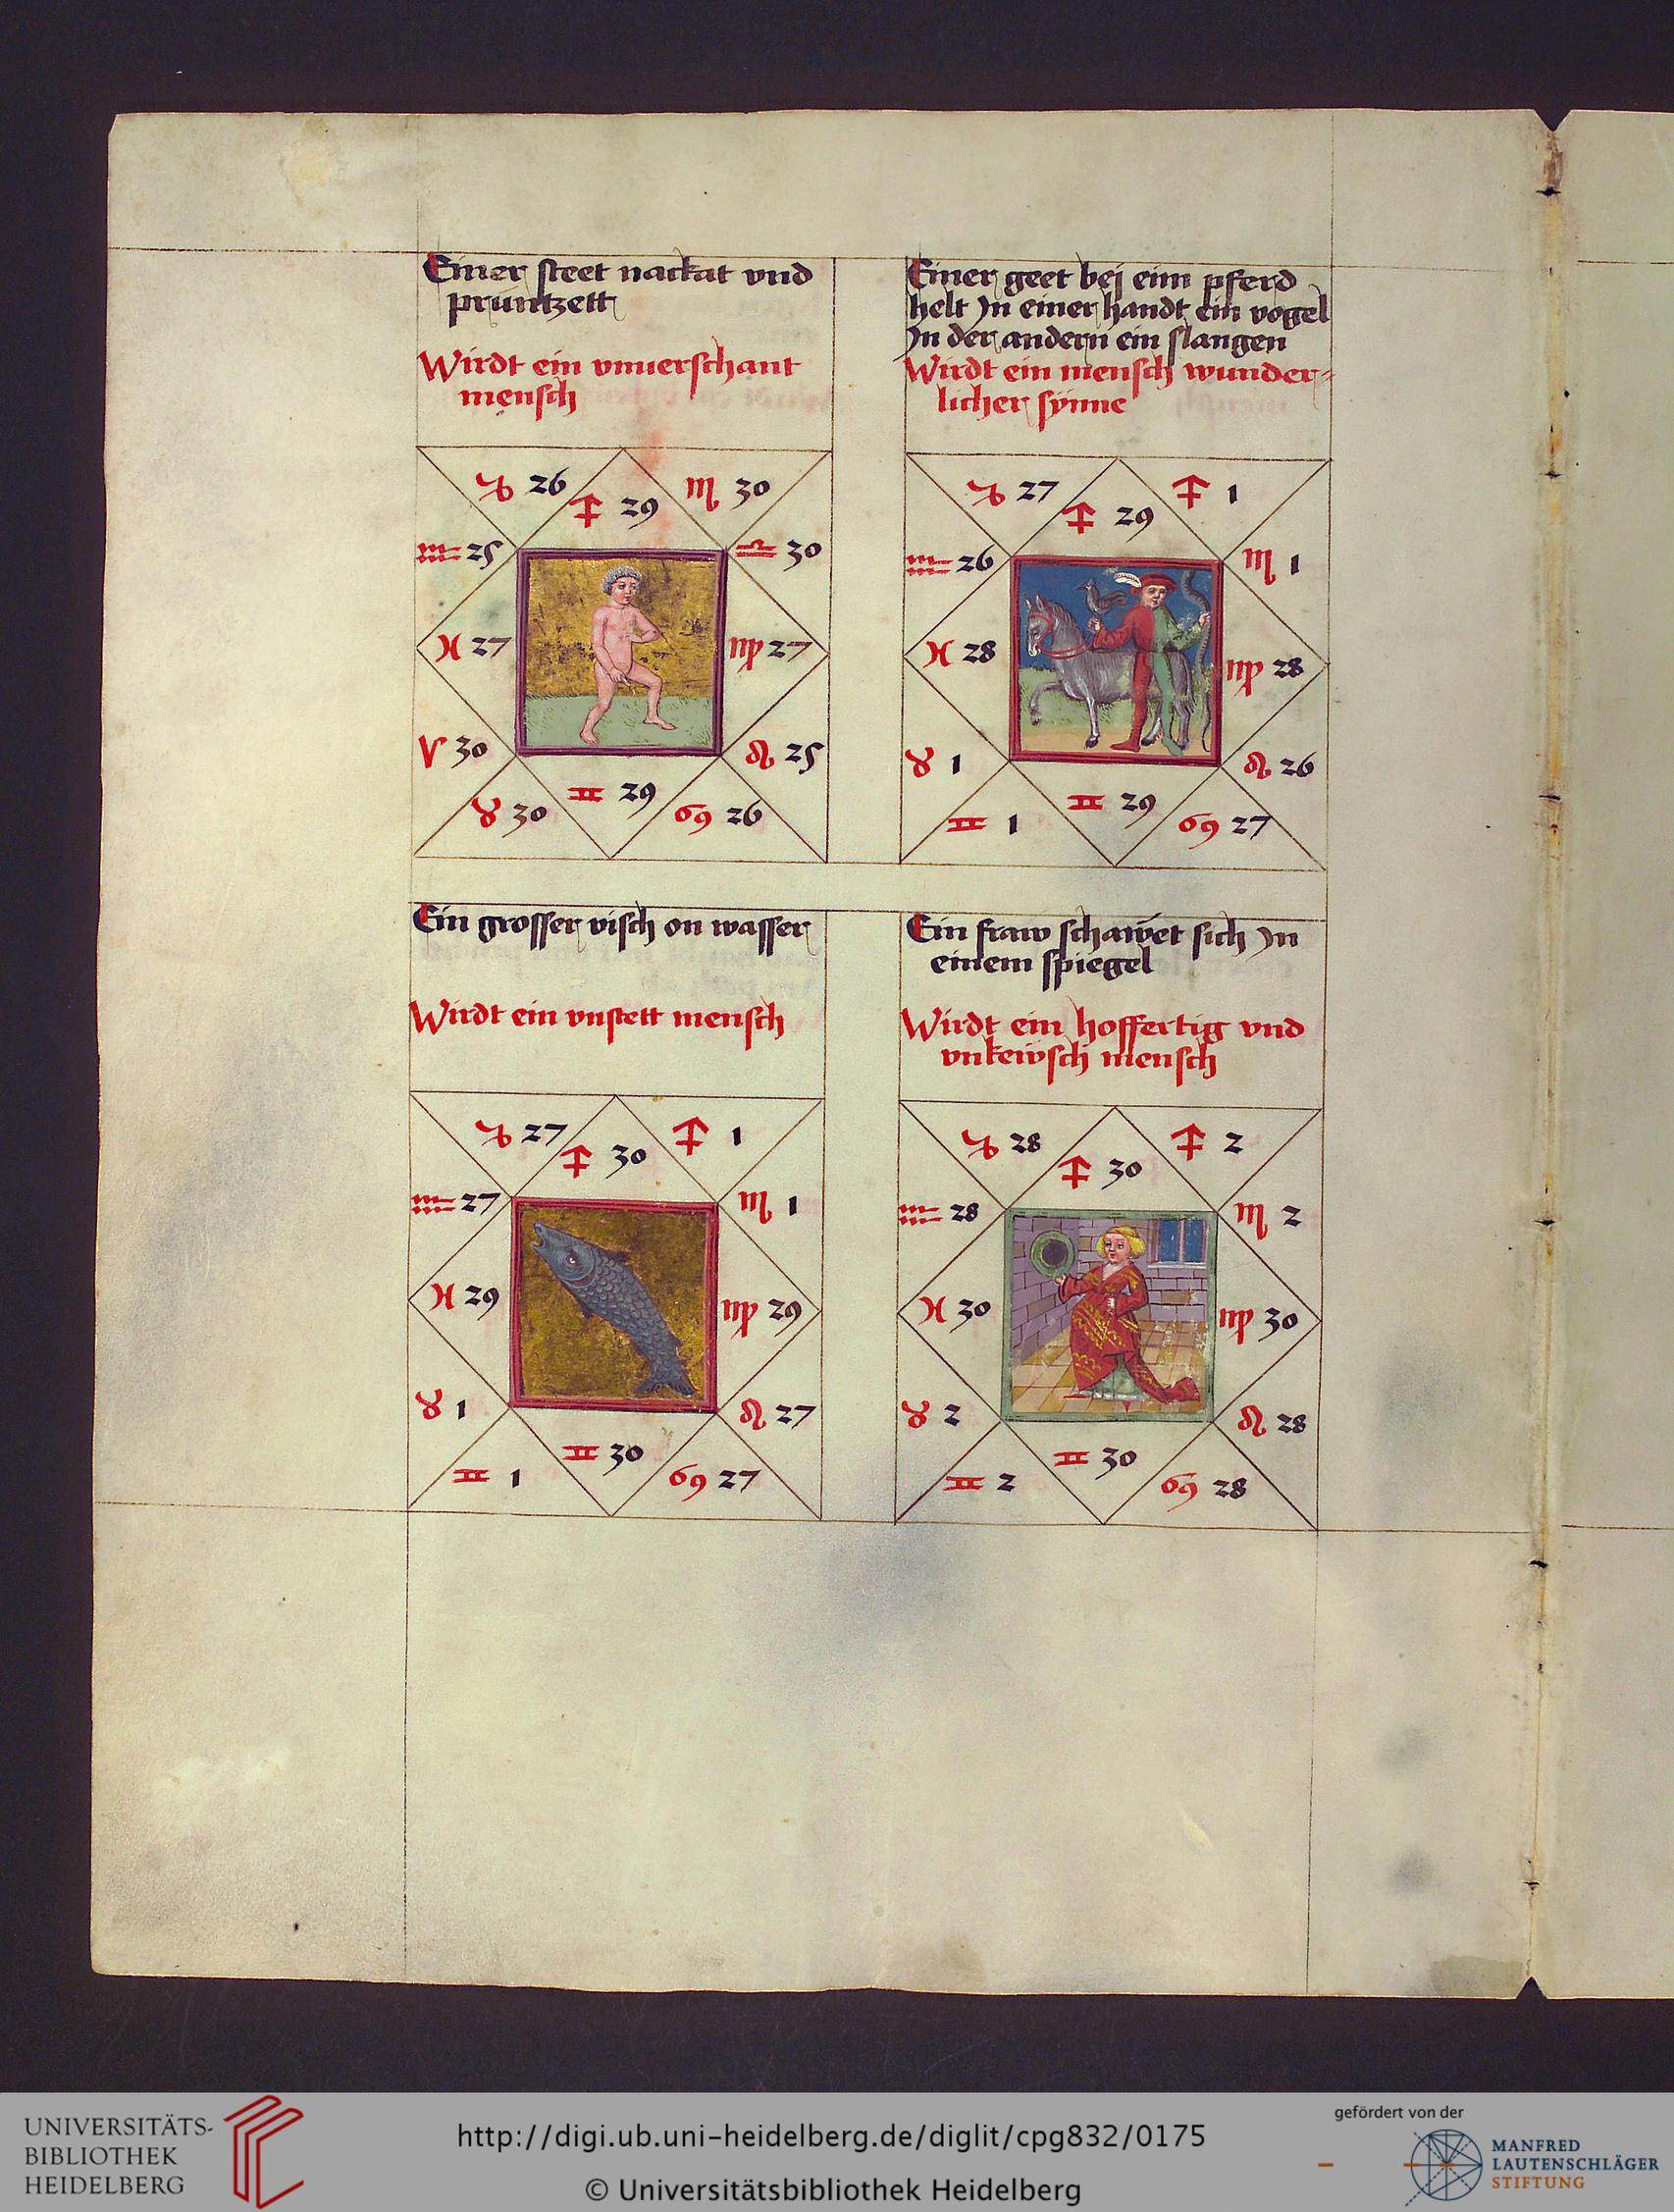 Einer steet nackat vnd
pruntzett
Wirdt ein vnuerschant
mensch
♑ 26
♐ 29
♏ 30
♒ 25
♎ 30
♓ 27
♍ 27
♈ 30
♌ 25
♉ 30
♊ 29
♋ 26
Einer geet bej eim pferd
helt Jn einer handt ein vogel
Jn der andern ein slangen
Wirdt ein mensch wunder=
licher synne
♑ 27
♐ 29
♐ 1
♒ 26
♏ 1
♓ 28
♍ 28
♉ 1
♌ 26
♊ 1
♊ 29
♋ 27
Ein grosser visch on wasser
Wirdt ein vnstett mensch
♑ 27
♐ 30
♐ 1
♒ 27
♏ 1
♓ 29
♍ 29
♉ 1
♌ 27
♊ 1
♊ 30
♋ 27
Ein fraw schawet sich Jn
einem spiegel
Wirdt ein hoffertig vnd
vnkewsch mensch
♑ 28
♐ 30
♐ 2
♒ 28
♏ 2
♓ 30
♍ 30
♉ 2
♌ 28
♊ 2
♊ 30
♋ 28
UNIVERSITÄTS-
BIBLIOTHEK
HEIDELBERG
http://digi.ub.uni-heidelberg.de/diglit/cpg832/0175
© Universitätsbibliothek Heidelberg
gefördert von der
MANFRED
LAUTENSCHLÄGER
STIFTUNG